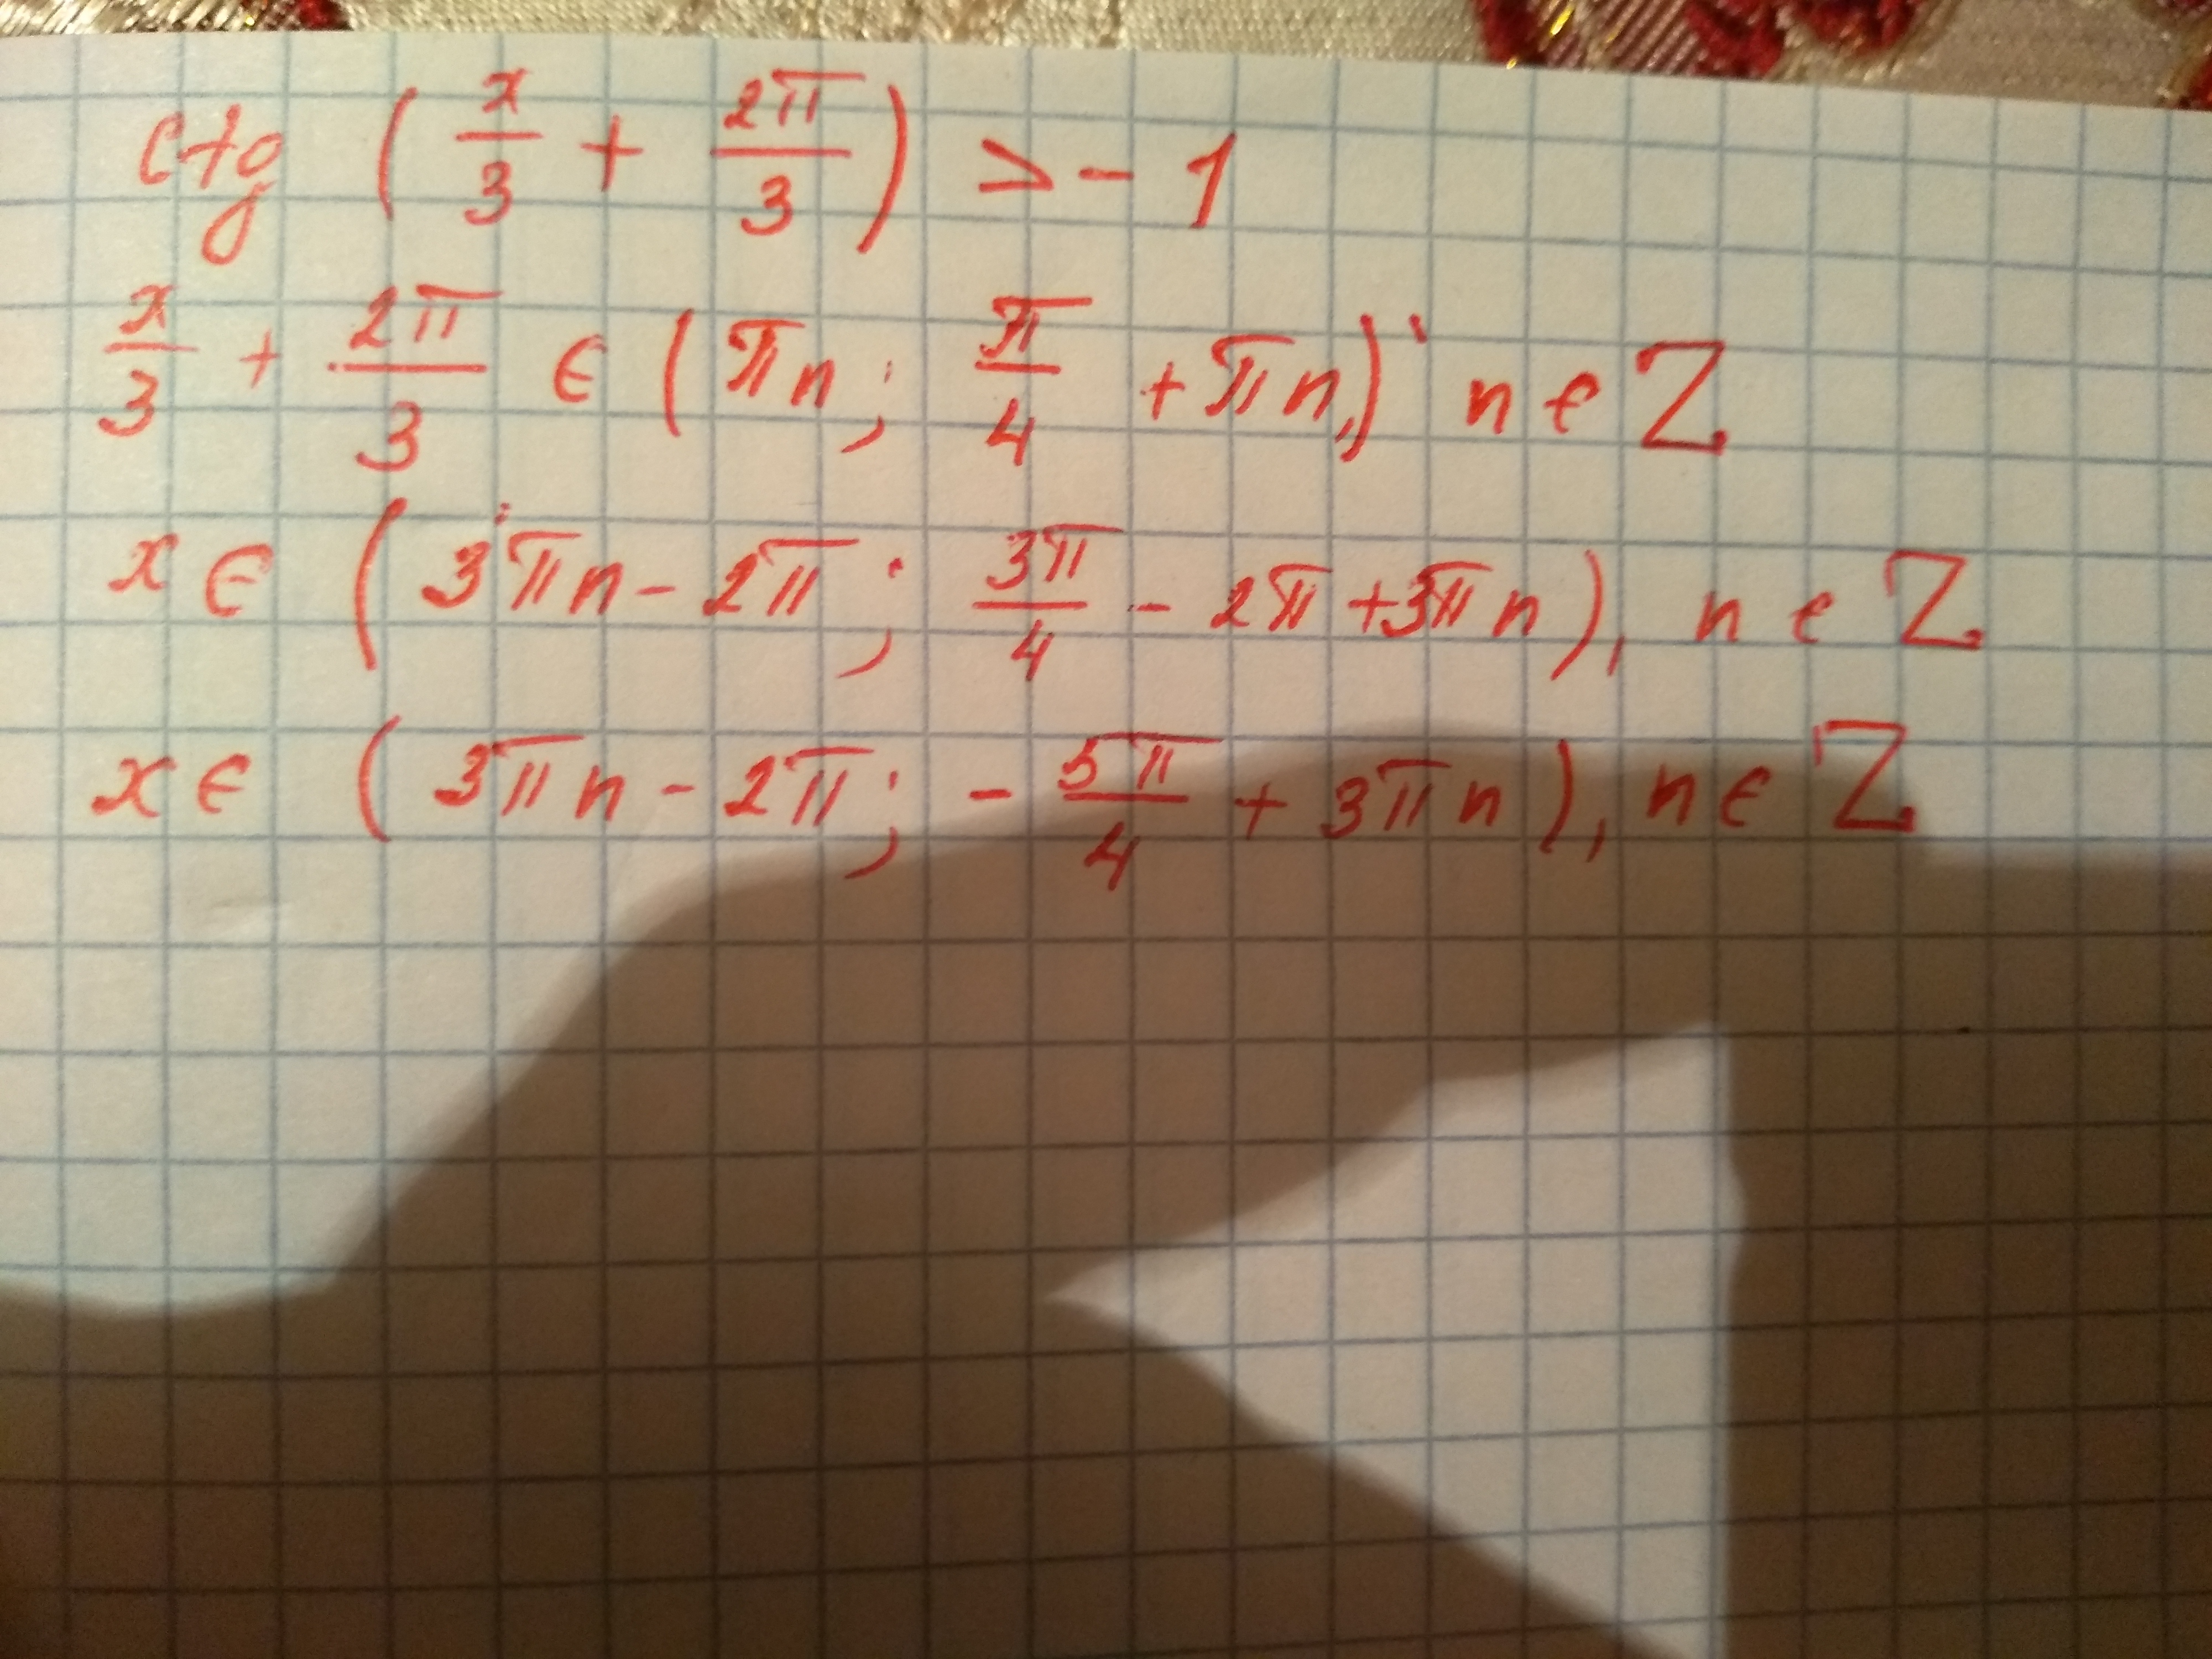 ctg (x/3 + 2π/3) > - 1
x/3 + 2π/3 ∈ (πn; π/4 + πn,) n ∈ Z
x ∈ (3πn - 2π; 3π/4 - 2π + 3πn), n ∈ Z
x ∈ (3πn - 2π; - 5π/4 + 3πn), n ∈ Z